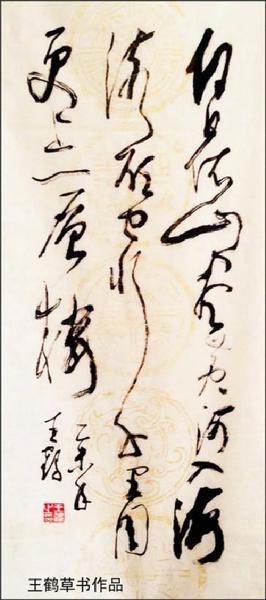 白日依山盡黃河入海
流欲窮千里目
更上一層樓
乙未年
王鹤
王鹤草书作品